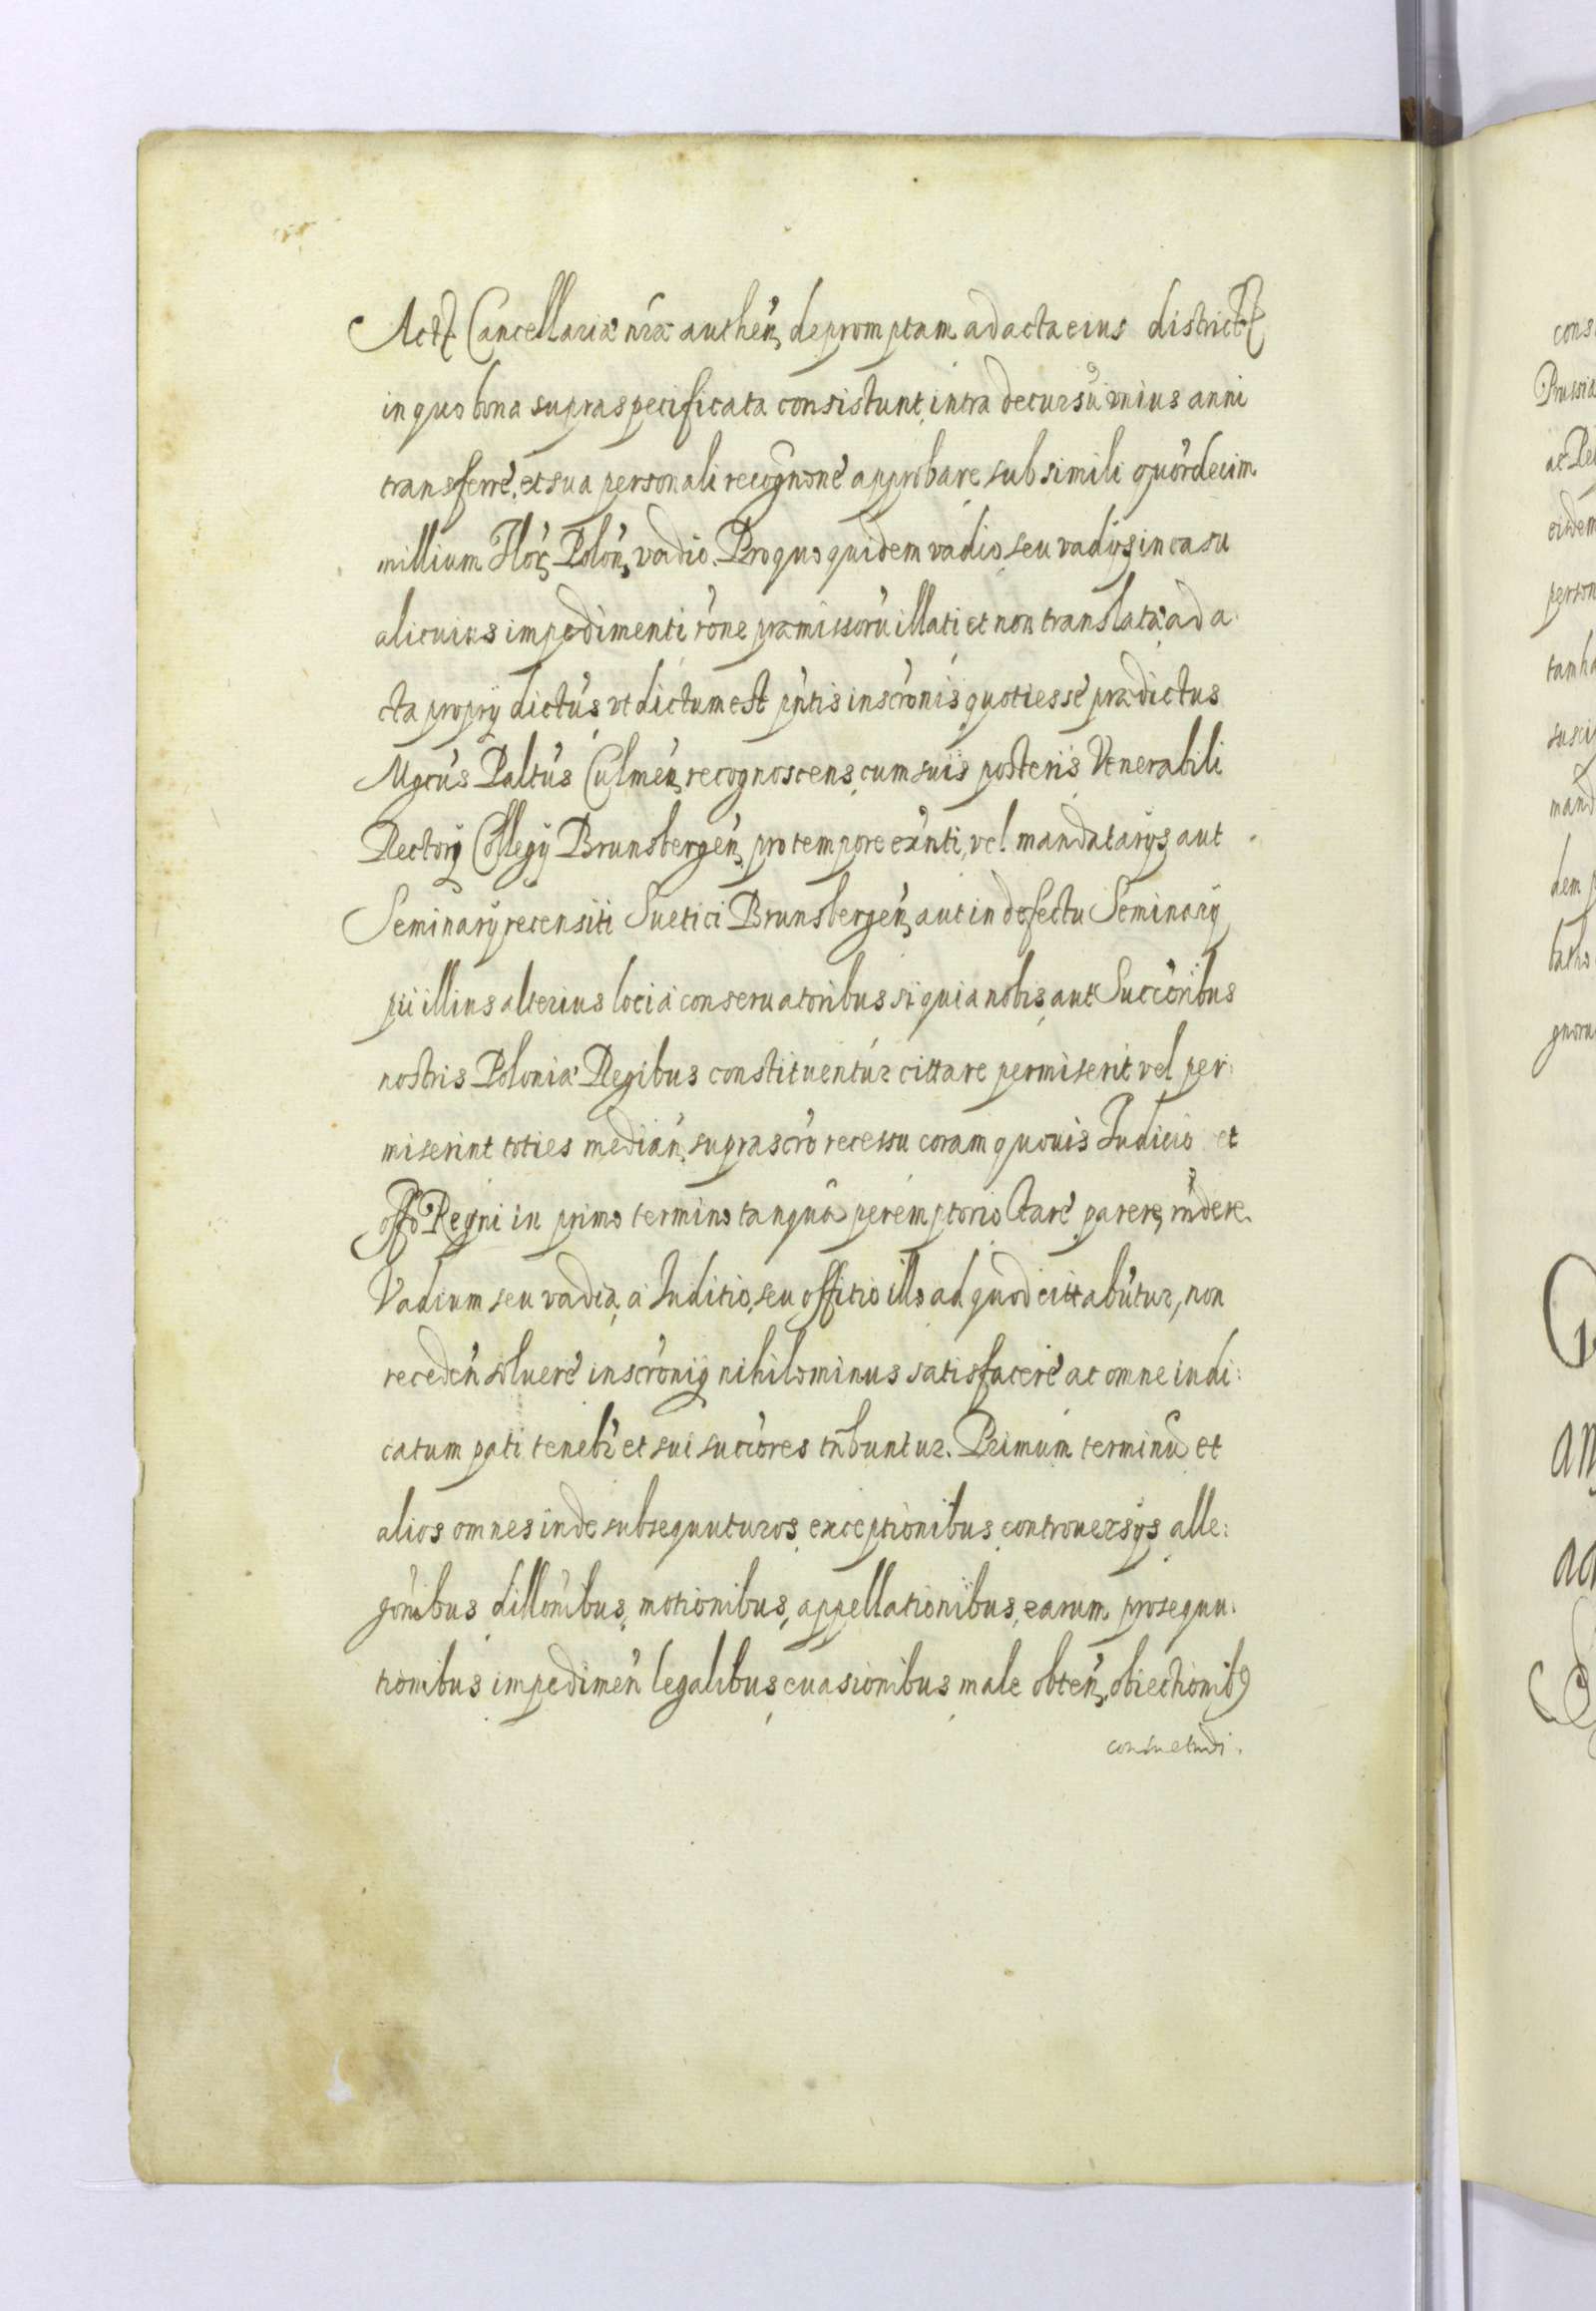 Actt Cancellariæ nr̃æ authen̄ depromptam ad acta eius districtt
in quo bona supraspecificata consistunt, intra decursũ vnius anni
transferre, et sua personali recogñone approbare sub simili quõrdecim
millium Flõr Polõn, vadio. Pro quo quidem vadio, seu vadijs in casu
alicuius impedimenti rõne præmissorũ illati et non translatæ ad a
cta proprij dictũs, vt dictum est pñtis inscrõnis, quotiesse prædictus
Mgcũs Paltũs Culmeñ, recognoscens, cum suis posteris Venerabili
Rectorij Collegij Brunsbergeñ, pro tempore exñti, vel mandatarijs, aut
Seminarij recensiti Suetici Brunsbergeñ, aut in defectu Seminarij
pti illius alterius loci à conseruatoribus si qui a nobis, aut Succõribus
nostris Poloniæ Regibus constituentur cittare permiserit vel per:
miserint toties mediañ, suprascrõ recessu coram quouis Iudicio et
offõ Regni in primo termino tanquã peremptorio Stare, parere, rñdere
Vadium seu vadia, à Iuditio, seu offitio illo ad quod cittabũtur, non
recedeñ soluere inscrõnij nihilominus satisfacere ac omne iudi:
catum pati tenebr̃ et sui succõres tñbuntur. Primum terminũ et
alios omnes inde subsequuturos, exceptionibus, controuersijs, alle:
gõnibus dillõnibus, motionibus, appellationibus, earum prosequu:
tionibus impedimeñ legalibus, euasionibus male obteñ, obiectionib9
consuetudi.
cons
Prussiæ
ac Re
eidem
person
tam ha
susci
mand
dem p